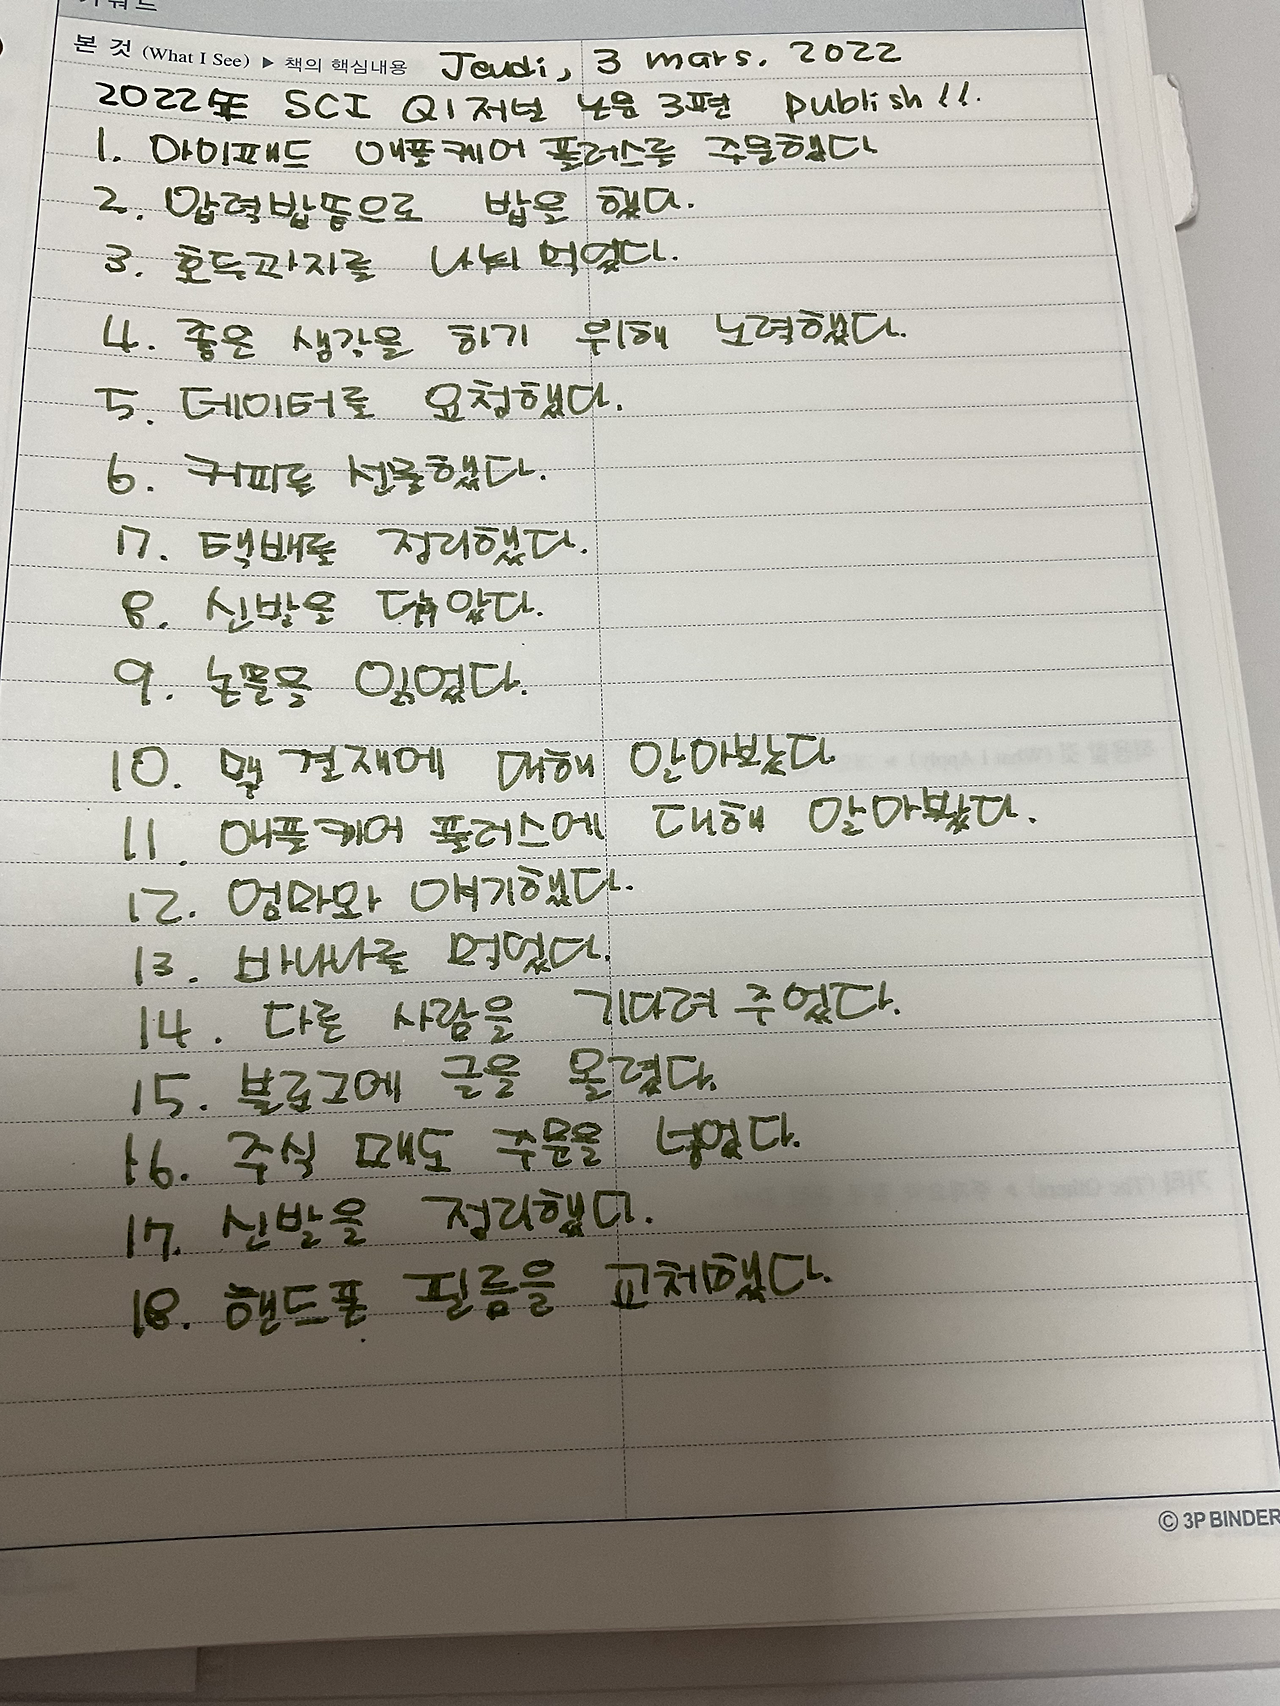 키워드
본 것 (What I See) ▶ 책의 핵심내용 Jeudi, 3 mars. 2022
2022年 SCI Q1 저널 논문 3편 publish!!.
1. 아이패드 애플케어 플러스를 주문했다
2. 압력밥통으로 밥을 했다.
3. 호두과자를 나눠 먹었다.
4. 좋은 생각을 하기 위해 노력했다.
5. 데이터를 요청했다.
6. 커피를 선물했다.
7. 택배를 정리했다.
8. 신발을 닦았다.
9. 논문을 읽었다.
10. 결재에 대해 알아보았다
11. 애플케어 플러스에 대해 알아보았다.
12. 엄마와 얘기했다.
13. 바나나를 먹었다.
14. 다른 사람을 기다려 주었다.
15. 블로그에 글을 올렸다.
16. 주식 매도 주문을 넣었다.
17. 신발을 정리했다.
18. 핸드폰 필름을 교체했다.
© 3P BINDER